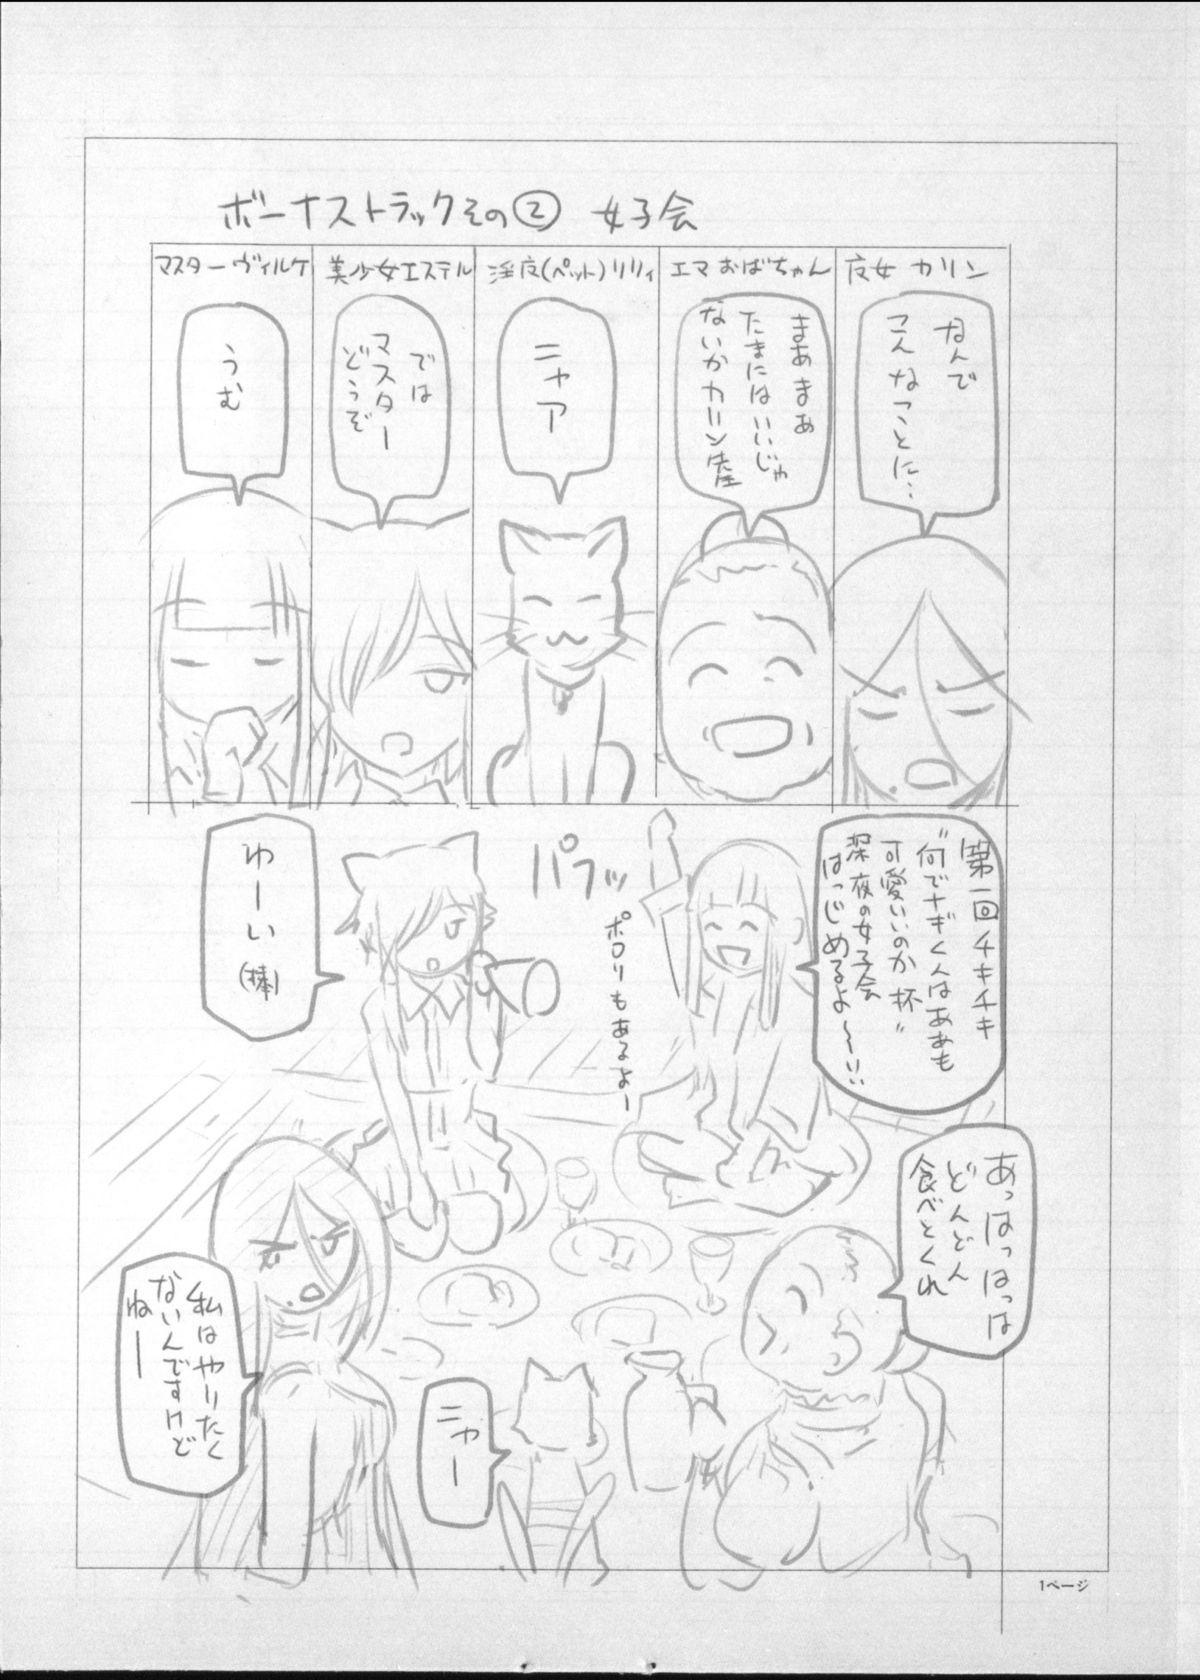 ボーナストラックその② 女子会
魔女 カリン
なんで
こんなことに…
エマおばちゃん
まあまあ
たまにはいいじゃ
ないかカリン達
淫魔(ペット)リリィ
ニャア
美少女エステル
では
マスター
どうぞ
マスターヴィルケ
うむ
第一回チキチキ
"何でナギくんはああも
可愛いのか杯"
深夜の女子会
はっじめるよ〜!!
パフッ
ポロリもあるよー
わーい
(棒)
あっはっはっは
どんどん
食べとくれ
私はやりたく
ないんですけど
ねー
ニャー
1ページ